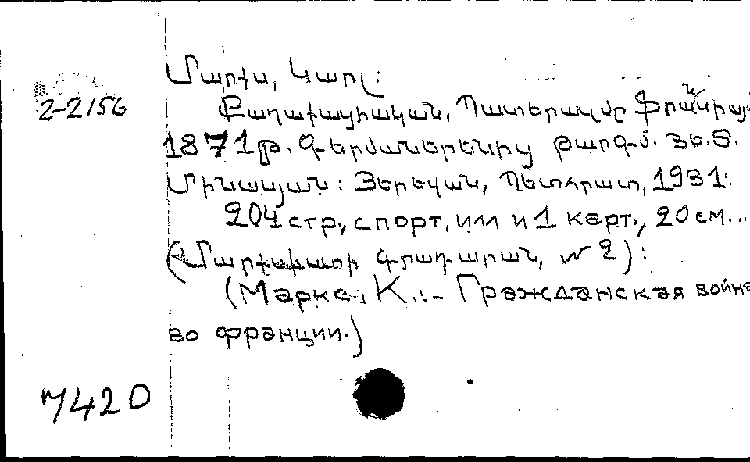 Մարքս, Կարլ:
2-2156
Քաղաքացիական, Պատերազմը Ֆրանսիայ
1871թ. Գերմաներենից թարգմ. Յե.Տ.
Մինասյան: Յերեվան, Պետհրատ, 1931:
204 стр., с порт, илл и 1 карт., 20 см...
(Մարքսիստի գրադարան, № 2):
(Маркс, К.:- Гражданская война
во франции.)
7420